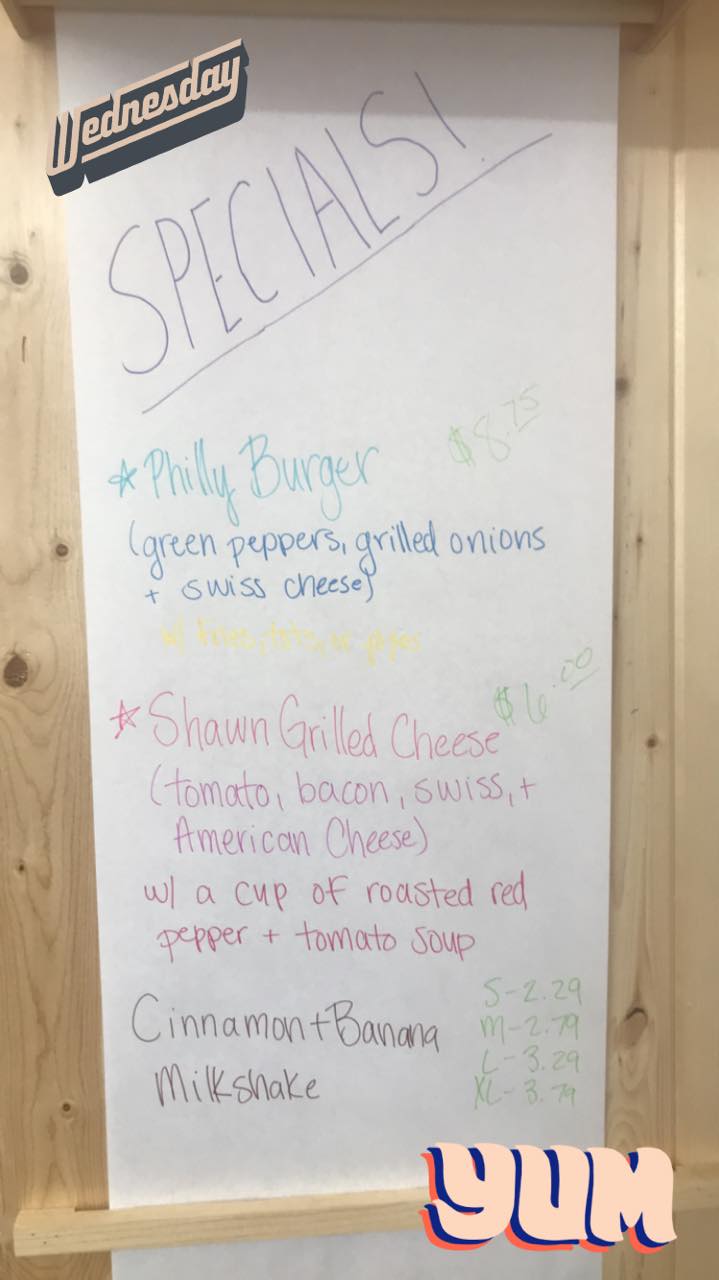 Wednesday
SPECIALS!
☆ Philly Burger $8.75
(green peppers, grilled onions
+ swiss cheese)
w/ fries, tots, or
☆ Shawn Grilled Cheese $6.00
(tomato, bacon, swiss, +
American Cheese)
w/ a cup of roasted red
pepper + tomato soup
Cinnamon + Banana
Milkshake
S-2.29
M-2.79
L-3.29
XL-3.79
YUM